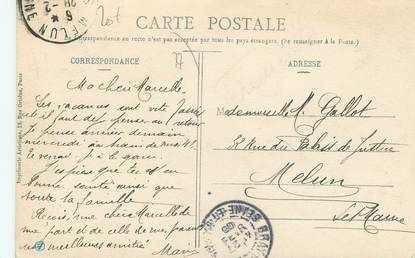 CARTE POSTALE
La correspondance au recto n'est pas acceptée par tous les pays étrangers. (Se renseigner à la Poste.)
CORRESPONDANCE
ADRESSE
Ma chère Marcelle
Les vacances sont vite passées
et il faut déjà penser au retour
Je pense arriver demain
mercredi au train de
Te verrai je à la gare.
J'espère que tu es en
bonne santé ainsi que
toute ta famille
Reçois, ma chère Marcelle de
ma part et de celle de mes parents
nos meilleures amitiés
Marie
Mademoiselle M. Gallot
32 Rue du Palais de Justice
Melun
Set Marne
MELUN
Imprimerie Artistique, 11, Rue Paris
SEINE-ET-MARNE